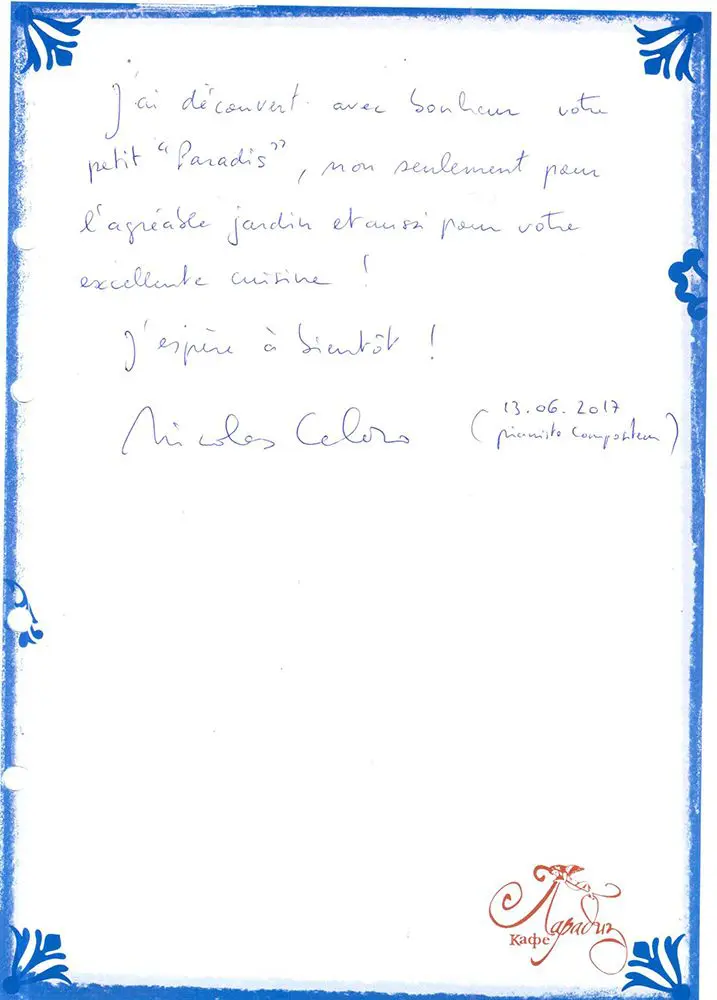 J'ai découvert avec bonheur votre
petit "Paradis", non seulement pour
l'agréable jardin et aussi pour votre
excellente cuisine !
J'espère à bientôt !
Nicolas Celoro
(13.06.2017
pianiste compositeur)
Парадиз
Кафе